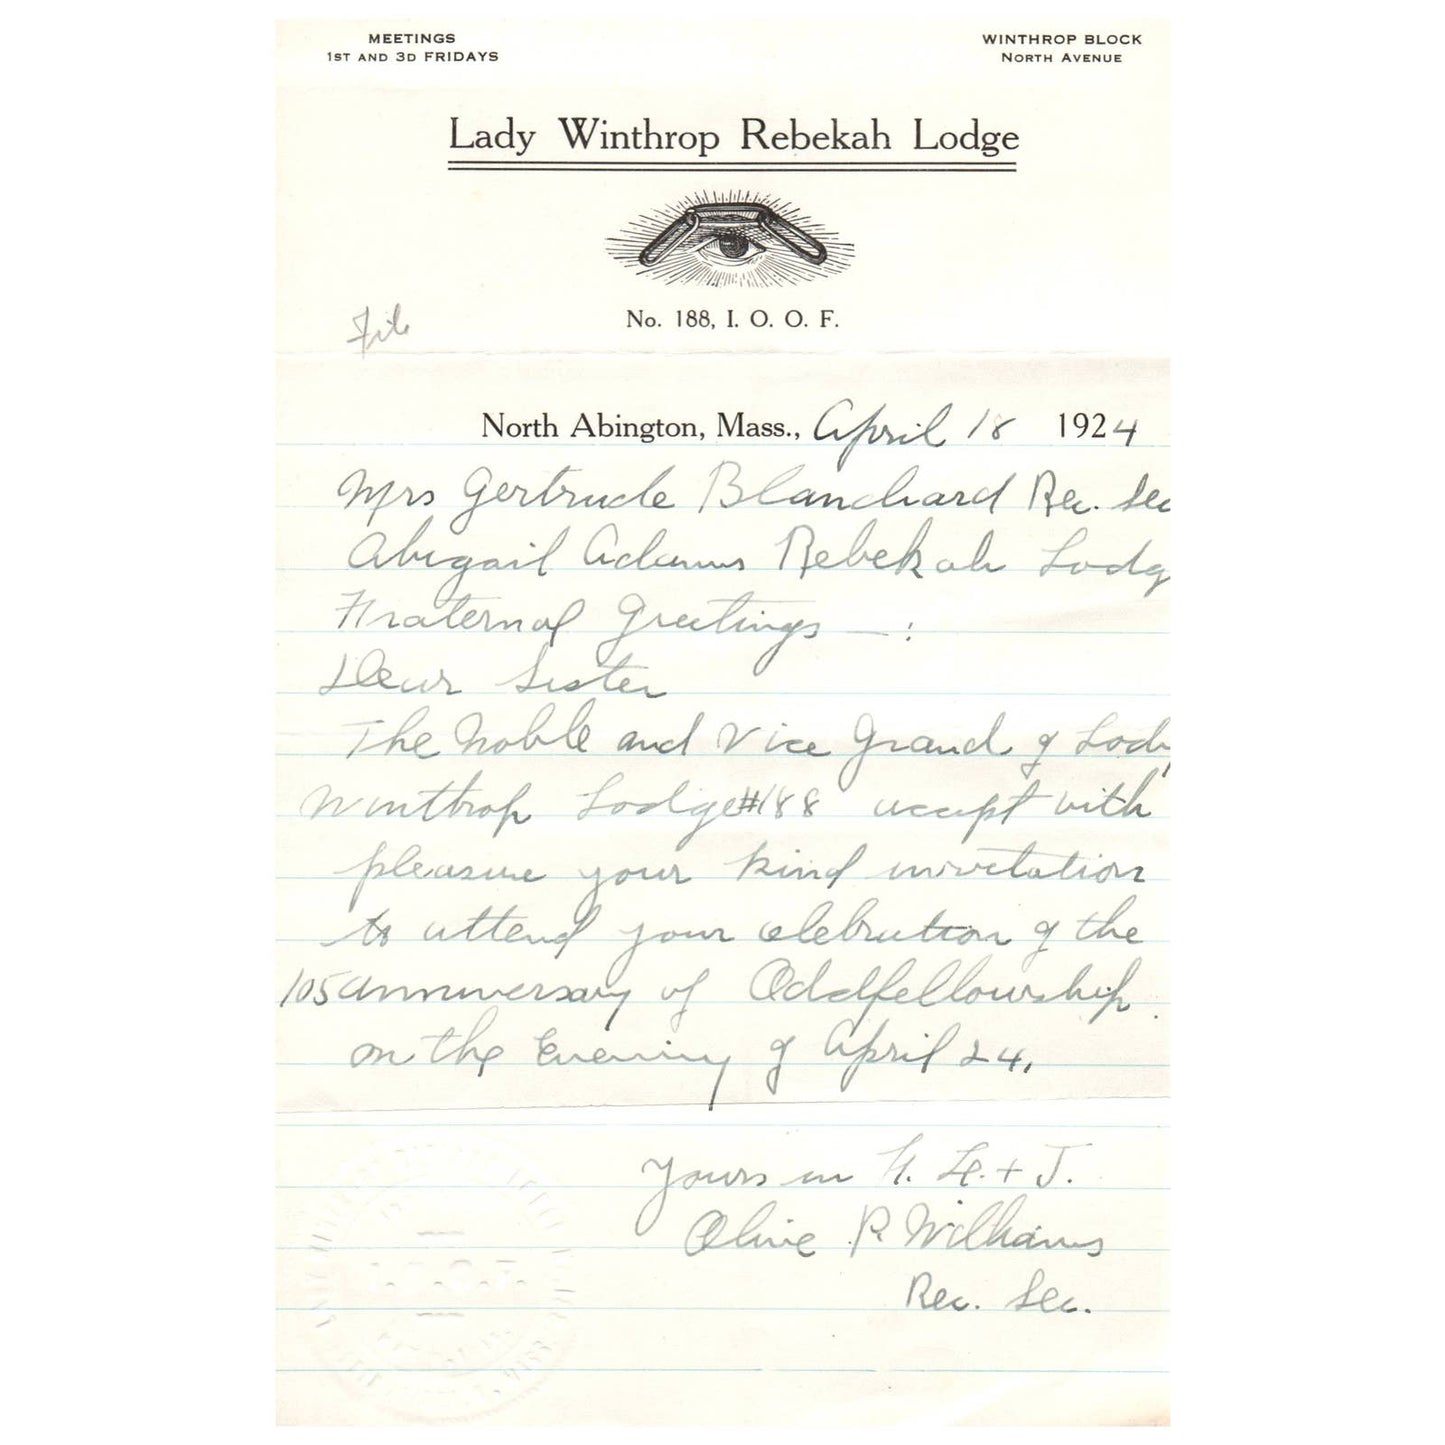 MEETINGS
1ST AND 3D FRIDAYS
WINTHROP BLOCK
NORTH AVENUE
Lady Winthrop Rebekah Lodge
No. 188, I. O. O. F.
File
North Abington, Mass., April 18 1924
Mrs Gertrude Blanchard Rec. Sec
Abigail Adams Rebekah Lodg
Fraternal Greetings —:
Dear Sister
The Noble and Vice Grand of Lady
Winthrop Lodge #188 accept with
pleasure your kind invitation
to attend your celebration of the
105 anniversary of Oddfellowship
on the Evening of April 24.
Yours in F. L. + T.
Olive P. Williams
Rec. Sec.
I.O.O.F.